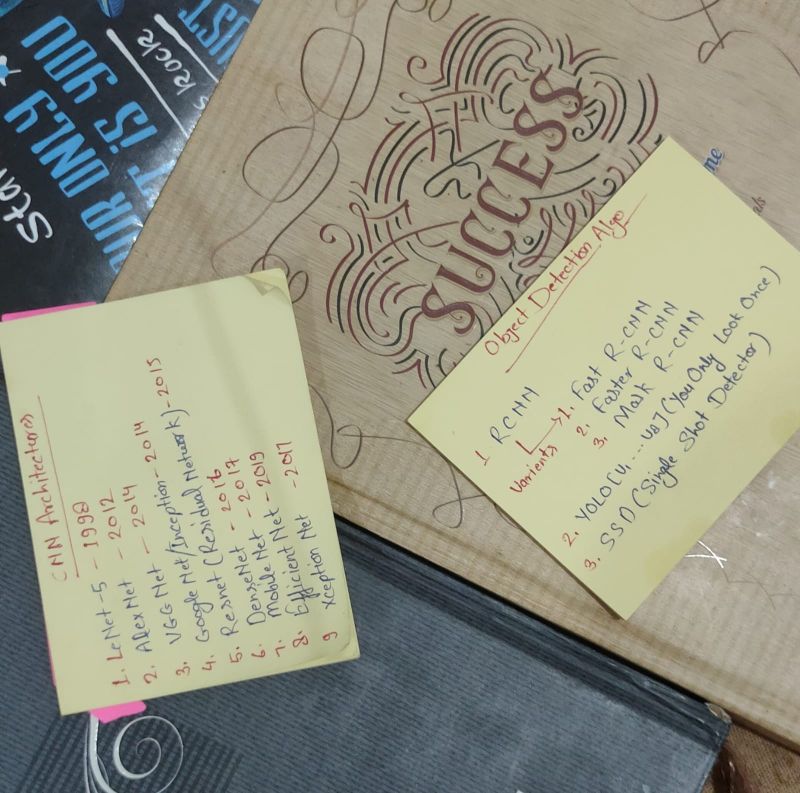 CNN Architectures
1. LeNet-5 - 1998
2. AlexNet - 2012
3. VGG Net - 2014
4. Google Net/Inception - 2014
5. Resnet (Residual Network) - 2015
6. DenseNet - 2016
7. Mobile Net - 2017
8. Efficient Net - 2019
9 Xception Net - 2017
SUCCESS
Object Detection Algo
1 RCNN
Varients → 1. Fast R-CNN
2. Faster R-CNN
3. Mask R-CNN
2. YOLO [v1 ... v8] (You Only Look Once)
3. SSD (Single Shot Detector)
ONLY
IS YOU
Rock